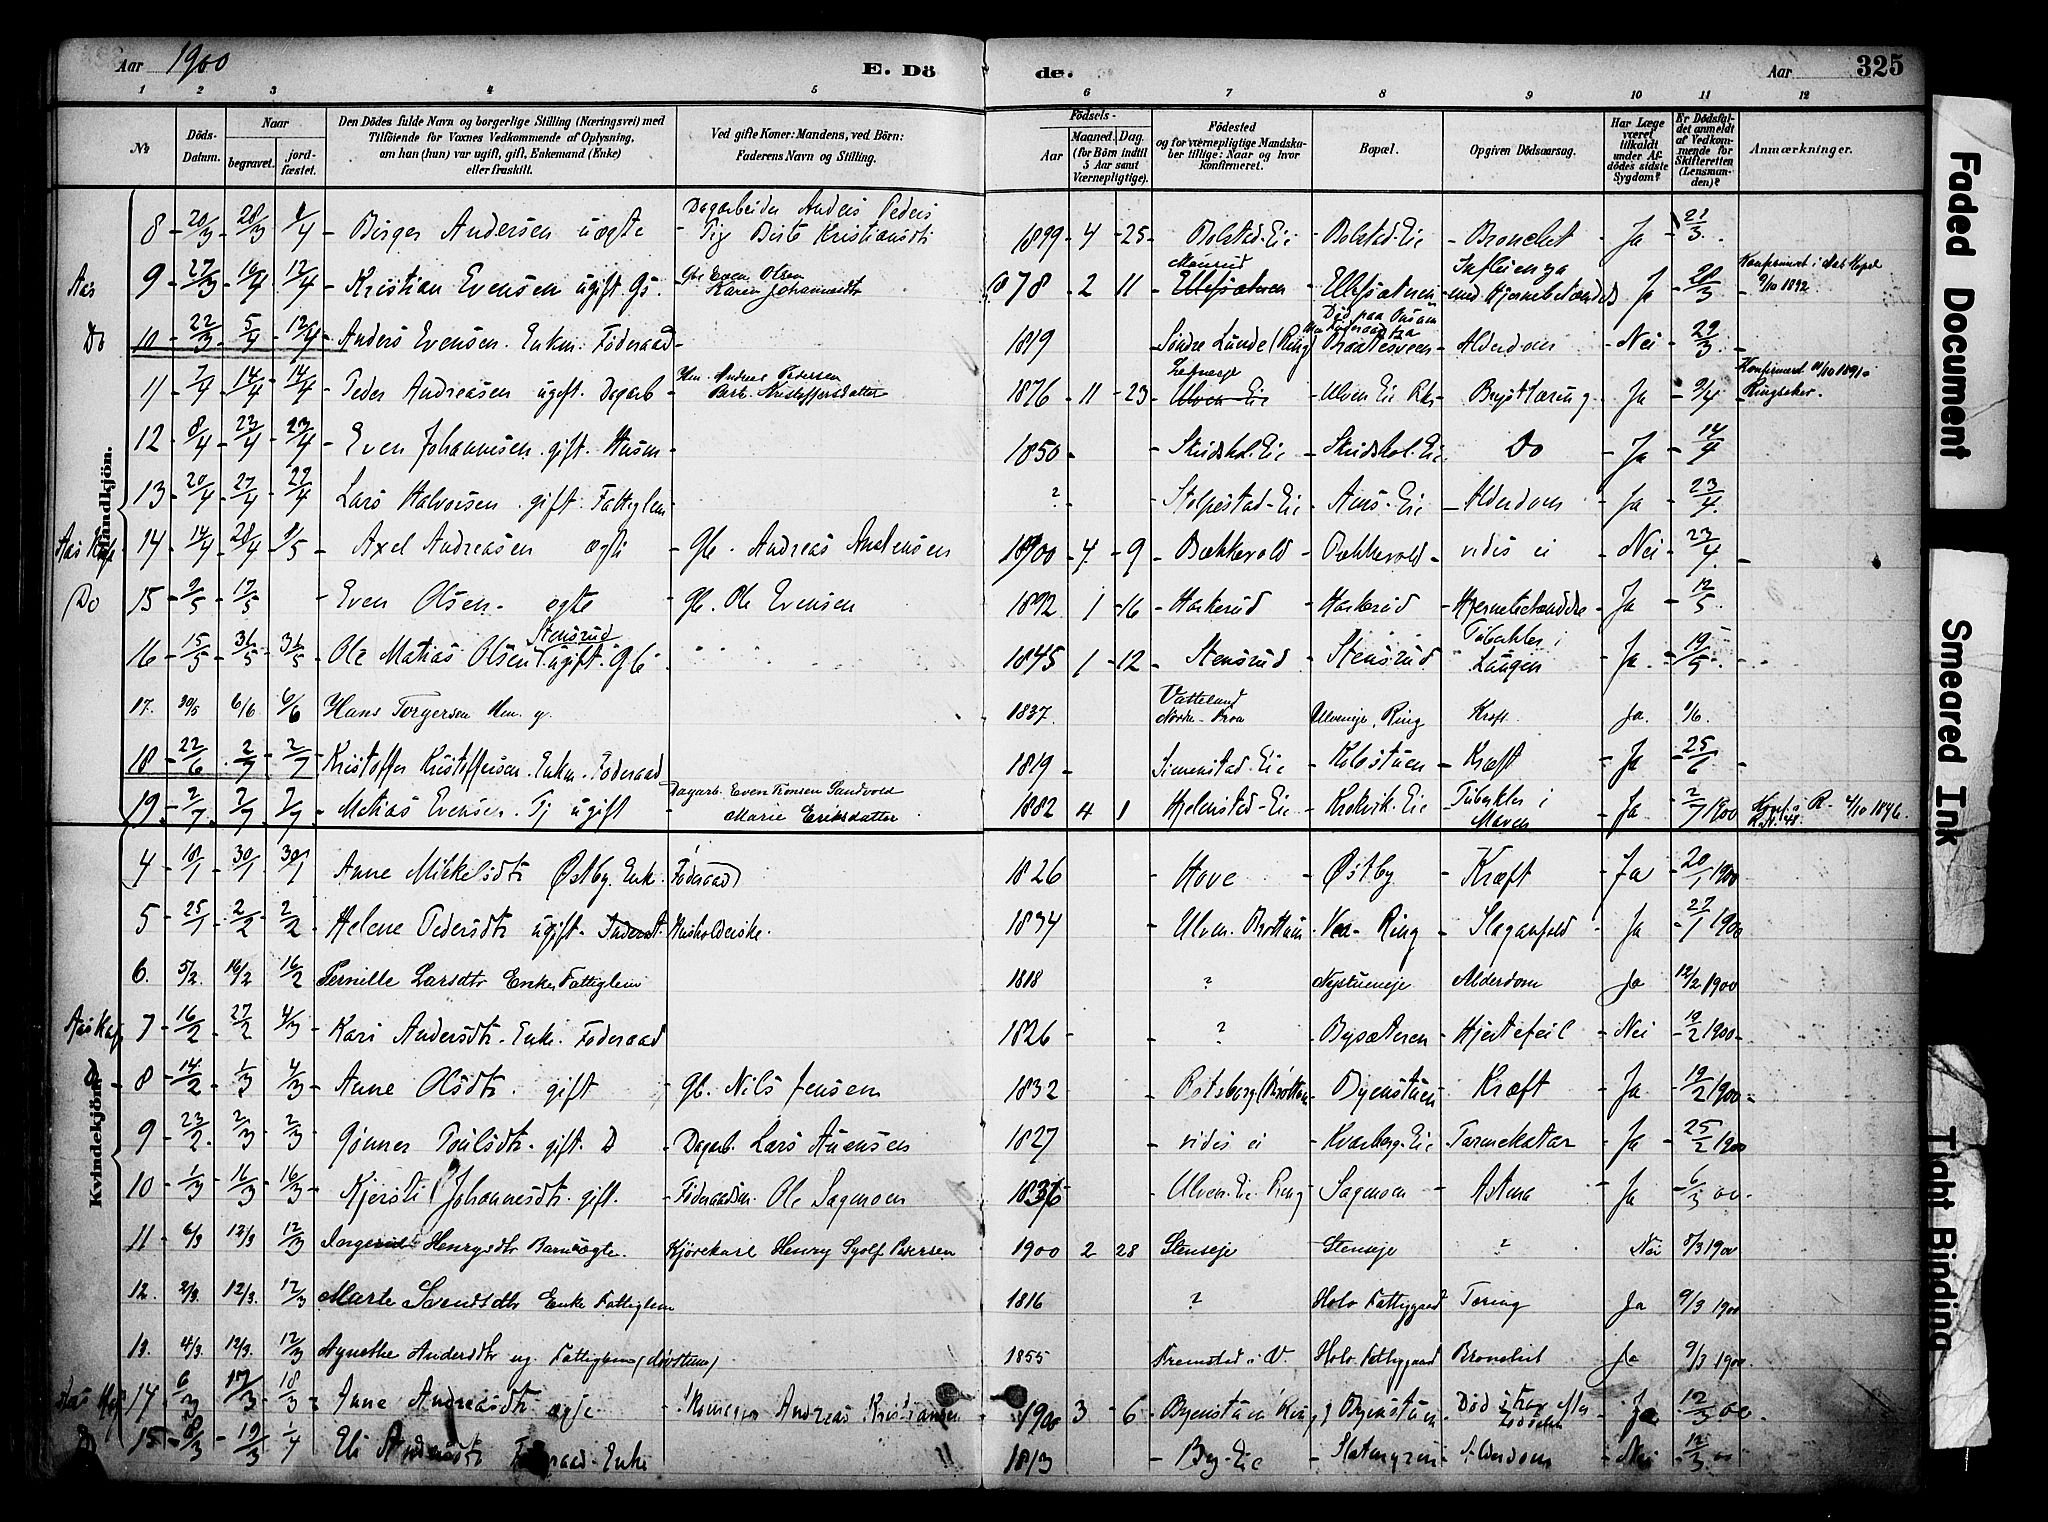 Aar 1900
E. Döde.
Aar 325
1 2 3 4 5 6 7 8 9 10 11 12
No
Döds-Datum.
Naar
begravet.
jordfæstet.
Den Dödes fulde Navn og borgerlige Stilling (Næringsvei) med
Tilföiende for Voxnes Vedkommende af Oplysning,
om han (hun) var ugift, gift, Enkemand (Enke)
eller fraskilt.
Ved gifte Koner: Mandens, ved Börn:
Faderens Navn og Stilling.
Födsels-
Aar
Maaned. Dag.
(for Börn indtil
5 Aar samt
Værnepligtige).
Födested
og for værnepligtige Mandskaber tillige: Naar og hvor
konfirmeret.
Bopæl.
Opgiven Dödsaarsag.
Har Læge
været
tilkaldt
under Afdödes sidste
Sygdom?
Er Dödsfaldet anmeldt
af Vedkommende for
Skifteretten
(Lensmanden)?
Anmærkninger.
Mandkjön.
8 20/3 28/3 1/4 Birger Andersen uægte Dagarbeider Anders Peders Pig Birte Kristiansdtr 1899 4 25 Bolstad-Eie Bolstad-Eie Bronchit Ja 21/3
Aas 9 27/3 10/4 12/4 Kristian Evensen ugift Gs. Gbr Even Olsen Karen Johannesdtr 1878 2 11 Ellesæteren Ellesæteren Influenza med Hjernebetændels Ja 28/3 Konfirmert i Aas Kapel 9/10 1892
Do 10 22/3 5/4 12/4 Anders Evensen. Enkm. Föderaad 1819 Söndre Lunde (Ring) Braatesveen Alderdom Nei 29/3
11 7/4 14/4 14/4 Peder Andreasen ugift. Dagarb Hm. Andreas Pedersen Bert. Kristoffersdatter 1876 11 23 Ulven-Eie Ulven Eie Rks Brysttæring Ja 9/4 Konfirmeret 11/10 1891 i Ringsaker.
12 8/4 23/4 23/4 Even Johannesen. gift. Husm 1850 Skridshol. Eie Skridshol. Eie Do Ja 14/4
13 20/4 27/4 27/4 Lars Halvorsen. gift. Fattiglem ? Stolpestad-Eie Aens-Eie Alderdom Ja 23/4
Aas Kap 14 14/4 28/4 9/5 Axel Andreasen ægte Gbr. Andreas Andersen 1900 4 9 Bækkevold Bækkevold vides ei Nei 23/4
Do 15 9/5 17/5 Even Olsen. ægte Gbr. Ole Evensen 1892 1 16 Haskerud Haskerud Hjernebetændelse Ja 12/5
16 15/5 31/5 31/5 Ole Matias Olsen Stensrud ugift. Gbr 1845 1 12 Stensrud Stensrud Tuberkler i Lungen Ja 19/5
17. 30/5 6/6 6/6 Hans Torgersen Hm. g. 1837. Ulveneje, Ring Kræft. Ja. 1/6
18 22/6 2/7 2/7 Kristoffer Kristoffersen. Enkm. Föderaad 1819 Simenstad. Eie Kolostuen Kræft Ja 25/6
19 2/7 7/7 7/7 Matias Evensen. Tj ugift Dagarb. Even Tronsen Sandvold Marie Eriksdatter 1882 4 1 Hjelmstad-Eie Krekvik-Eie Tuberkler i Maven Ja 2/7 1900 Konf. i R. 4/10 1896.
Kvindekjön.
4 18/1 30/1 30/1 Anne Mikkelsdtr Østby. Enke. Föderaad 1826 Hove Østby Kræft Ja 20/1 1900
5 25/1 2/2 2/2 Helene Pedersdtr ugift. Inderst. Husholderske. 1834 Ulven. Brøttum Ven. Ring Slaganfald Ja 27/1 1900
6. 5/2. 16/2 16/2 Pernille Larsdtr Enke Fattiglem 1818 ? Nystueneje Alderdom Ja 12/2 1900
Aas Kap 7 16/2 27/2 4/3 Kari Andersdtr. Enke. Föderaad 1826 ? Bysæteren Hjertefeil Nei 19/2 1900
Do 8 14/2 1/3 4/3 Anne Olsdtr. gift Gbr. Nils Jensen 1832 Rotsborg (Brøttum Byenstuen Kræft Ja 19/2 1900
9 23/2 2/3 2/3 Gönner Poulsdtr. gift. D Dagarb. Lars Auensen 1827 vides ei Kvarberg. Eie Tarmekatar Ja 25/2 1900
10 1/3 16/3 16/3 Kjersti Johannesdtr. gift. Föderaadsm. Ole Sagmoen 1836 Ulven. Eie Ring Sagmoen Astma Ja 6/3 00
11 6/3 12/3 12/3 Ingerid Henrysdtr Barn ægte. Kjörekarl Henry Syolf Petersen 1900 2 28 Stenseje Stenseje ? Nei 8/3 1900
12. 2/3. 12/3. 12/3 Marte Svendsdtr Enke Fattiglem 1816 ? Holo Fattiggaard Tæring Ja 9/3 1900
13. 4/3. 12/3. 12/3 Agnethe Andersdtr ug. Fattiglem (dövstum) 1855 Fremstad i V. Holo Fattiggaard Bronchit Ja 9/3 1900
Aas Kap 14 6/3 17/3 18/3 Anne Andreasdtr. ægte Andreas Kristiansen 1900 3 6 Byenstuen Ring Byenstuen Död strax efter Födselen Ja 12/3 00
Do 15 8/3 19/3 1/4 Eli Andersdtr Föderaad. Enke 1813 By-Eie Alderdom Nei 12/3 00
Faded Document
Smeared Ink
Tight Binding